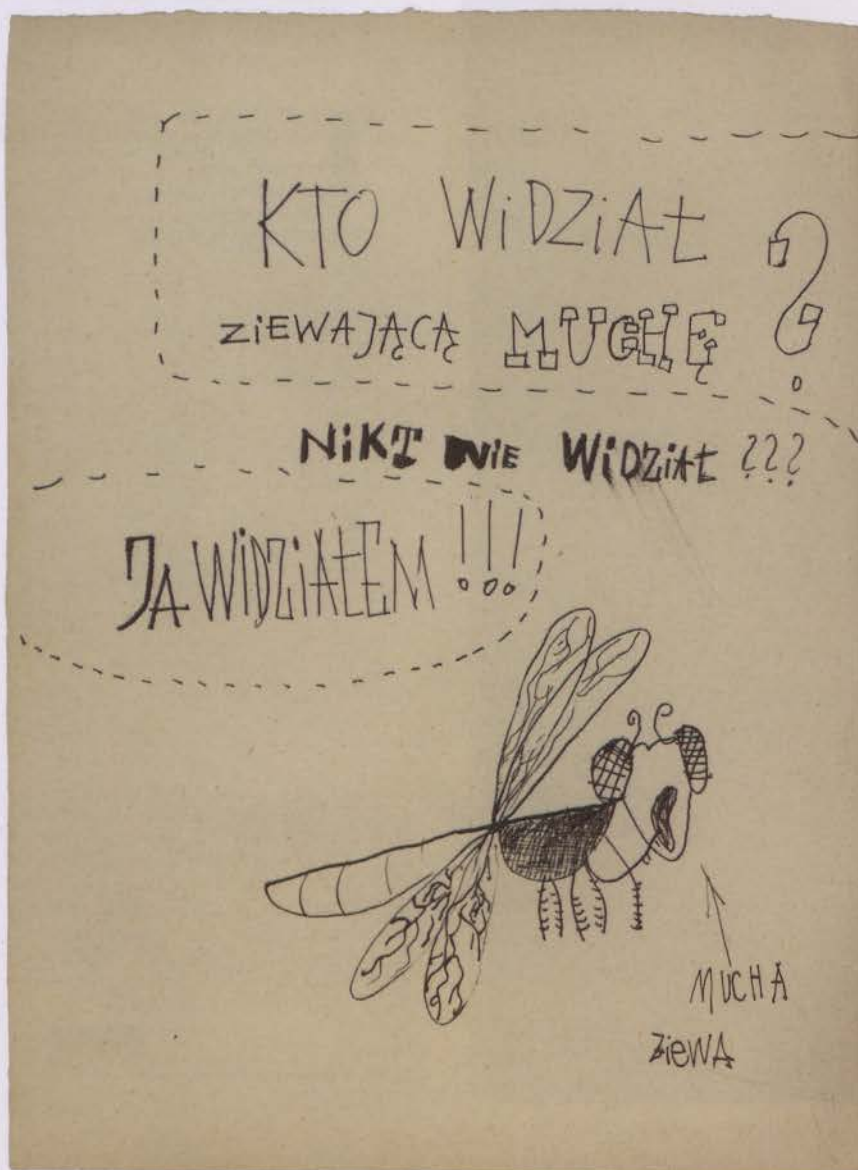 KTO WiDZiAŁ ?
ZiEWAJĄCĄ MUCHĘ
NiKT NiE WiDZiAŁ ???
JA WiDZiAŁEM !!!
MUCHA
ZiEWA